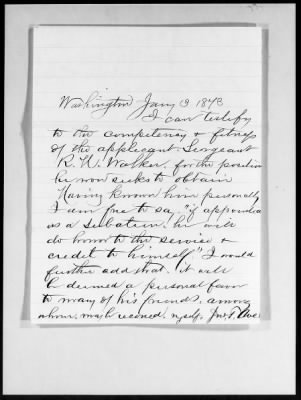 Washington Jany 3 1873
I can testify
to the competency & fitness
of the applicant Sergeant
R. W. Walker, for the position
he now seeks to obtain
Having known him personally
I am free to say, "if appointed
as a subaltern, he will
do honor to the service &
credit to himself" I would
further add that, it will
be deemed a personal favor
to many of his friends, among
whom, may be reconed, myself.